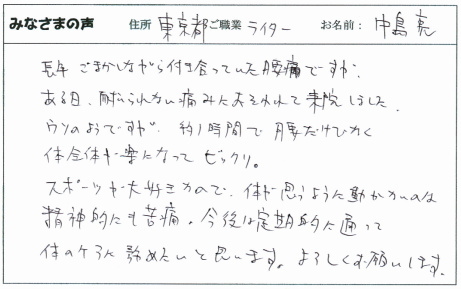 みなさまの声 住所 東京都 ご職業 ライター お名前: 中島亮
長年ごまかしながら付き合っていた腰痛ですが、
ある日、耐えられない痛みにおそわれて来院しました。
ウソのようですが、約1時間で腰だけでなく
体全体が楽になってビックリ。
スポーツが大好きなので、体が思うように動かないのは
精神的にも苦痛。今後は定期的に通って
体のケアに努めたいと思います。よろしくお願いします。